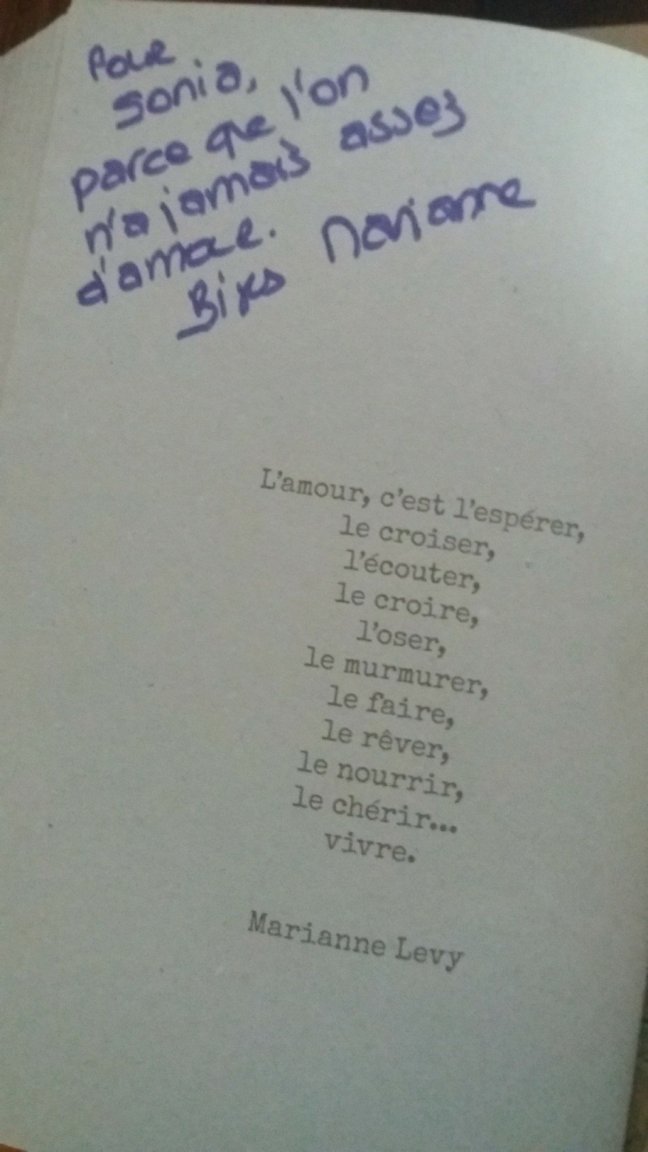 Pour
Sonia,
parce que l'on
n'a jamais assez
d'amour.
Bises Marianne
L'amour, c'est l'espérer,
le croiser,
l'écouter,
le croire,
l'oser,
le murmurer,
le faire,
le rêver,
le nourrir,
le chérir...
vivre.
Marianne Levy